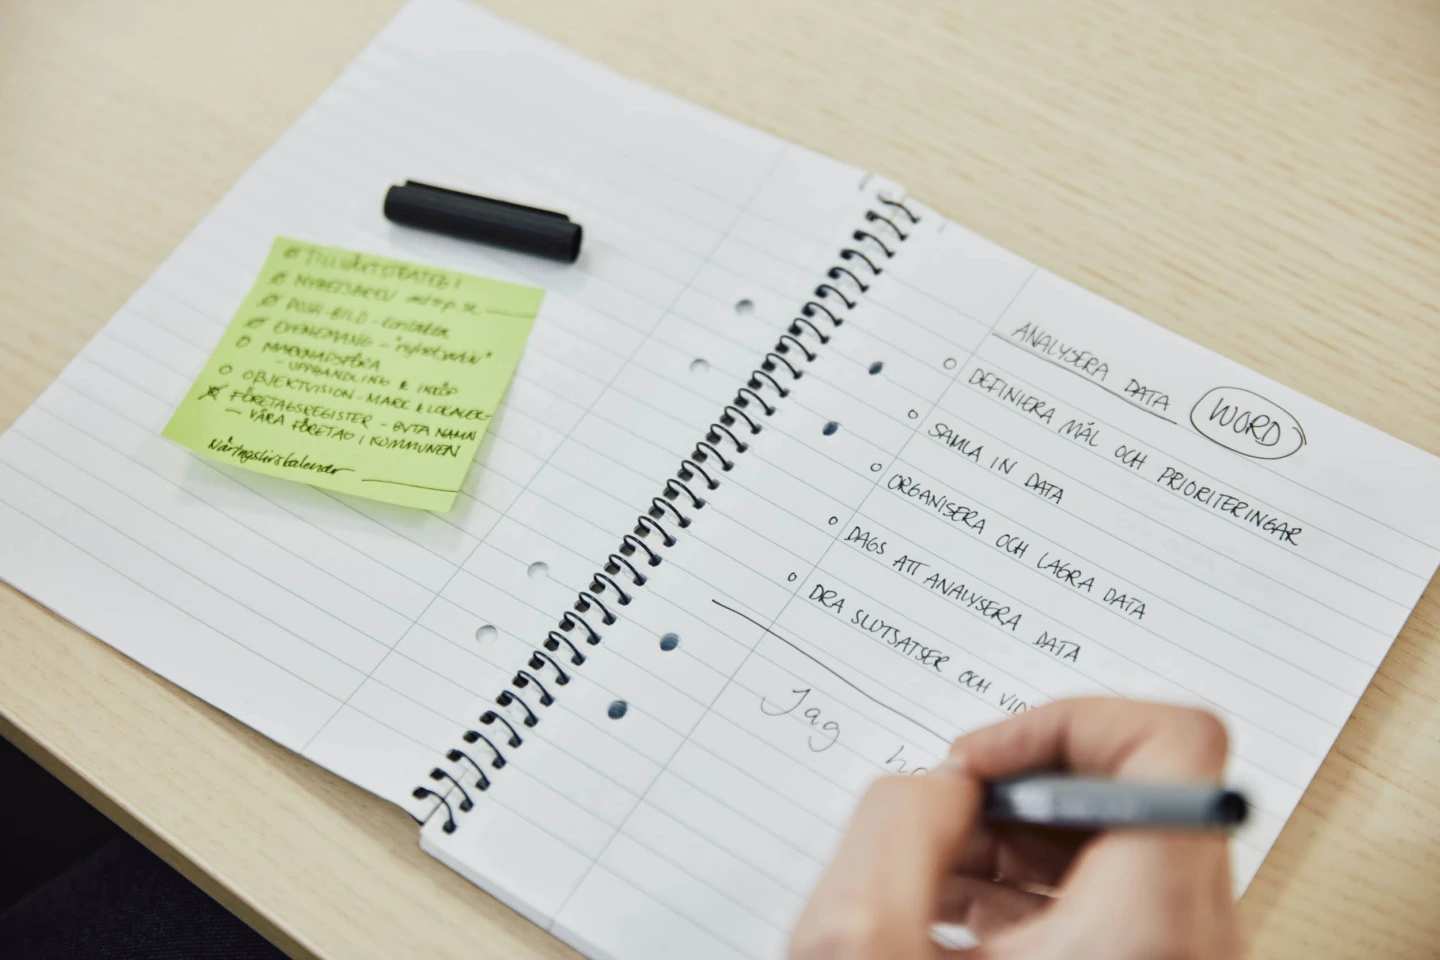 TILLVÄXTSTRATEGI
NYHETSBREV
POSH-BILD - kontakter
EVENEMANG - "nyhetsbrev"
MARKNADSFÖRA
- UPPHANDLING & INKÖP
OBJEKTVISION - MARK & LOKALER
FÖRETAGSREGISTER - BYTA NAMN
- VÅRA FÖRETAG I KOMMUNEN
Näringslivskalender
ANALYSERA DATA
WORD
DEFINIERA MÅL OCH PRIORITERINGAR
SAMLA IN DATA
ORGANISERA OCH LAGRA DATA
DAGS ATT ANALYSERA DATA
DRA SLUTSATSER OCH
Jag